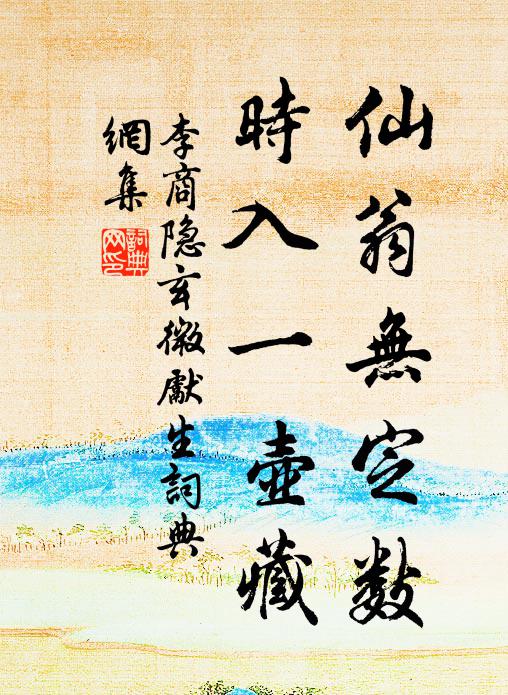 仙翁無定數
時入一壺藏
李商隐玄微獻生詞典
網集
詞典
网印